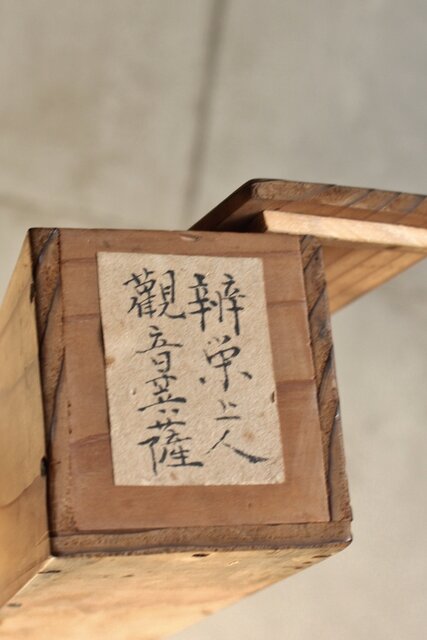 辨栄上人
觀音菩薩